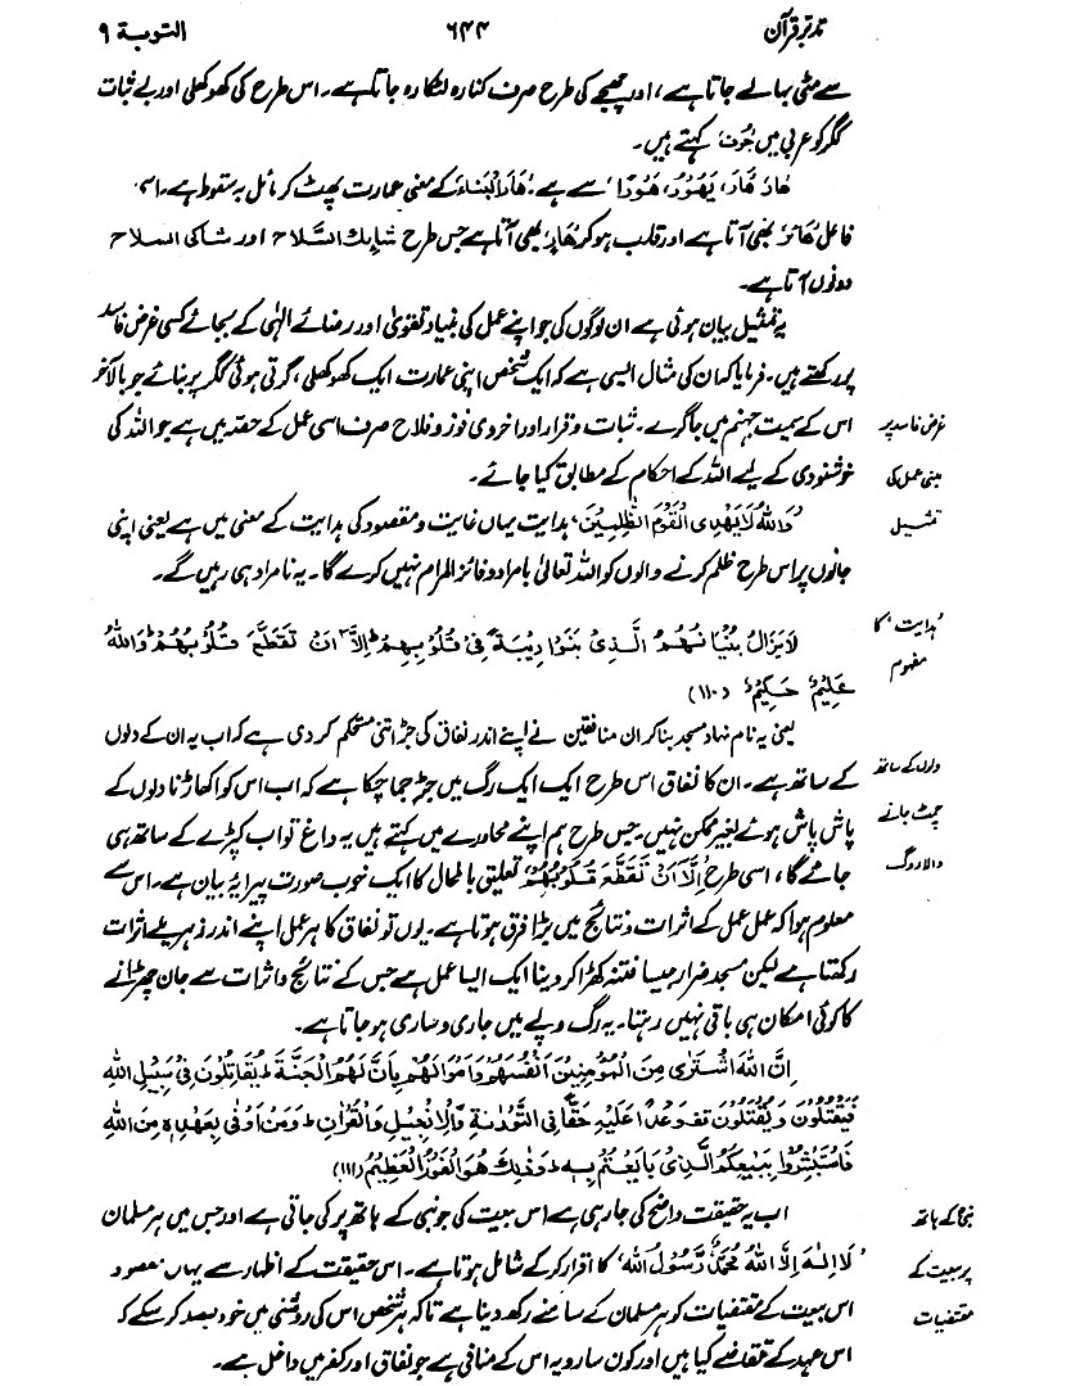 تدبرِ قرآن ۶۴۴ التوبة ۹
سے مٹی بہا لے جاتا ہے، اور چھجے کی طرح صرف کنارہ لٹکا رہ جاتا ہے۔ اس طرح کی کھوکھلی اور بے ثبات
گگر کو عربی میں 'جُرُف' کہتے ہیں۔
'ھَار' ھَارَ، یَھُوْرُ، ھَوْرًا، سے ہے۔ 'ھَارَ الْبِنَاءُ' کے معنی عمارت پھٹ کر مائل بہ سقوط ہے۔ اسم
فاعل 'ھَائِرٌ' بھی آتا ہے اور قلب ہو کر 'ھَارٍ' بھی آتا ہے جس طرح شَابِكُ السَّلاح اور شاکی السلاح
دونوں آتا ہے۔
یہ تمثیل بیان ہوئی ہے ان لوگوں کی جو اپنے عمل کی بنیاد تقویٰ اور رضائے الٰہی کے بجائے کسی غرض فاسد
پر رکھتے ہیں۔ فرمایا کہ ان کی مثال ایسی ہے کہ ایک شخص اپنی عمارت ایک کھوکھلی، گرتی ہوئی گگر پر بنائے جو بالآخر
غرض فاسد پر اس کے سمیت جہنم میں جا گرے۔ ثبات و قرار اور اخروی فوز و فلاح صرف اسی عمل کے حصہ میں ہے جو اللہ کی
مبنی عمل کی خوشنودی کے لیے اللہ کے احکام کے مطابق کیا جائے۔
تمثیل 'وَاللّٰهُ لَا يَهْدِى الْقَوْمَ الظّٰلِمِيْنَ'، ہدایت یہاں غایت و مقصود کی ہدایت کے معنی میں ہے یعنی اپنی
جانوں پر اس طرح ظلم کرنے والوں کو اللہ تعالیٰ بامراد و فائز المرام نہیں کرے گا۔ یہ نامراد ہی رہیں گے۔
'ہدایت' کا لَا يَزَالُ بُنْيَانُهُمُ الَّذِىْ بَنَوْا رِيْبَةً فِىْ قُلُوْبِهِمْ اِلَّآ اَنْ تَقَطَّعَ قُلُوْبُهُمْ وَاللّٰهُ
مفہوم عَلِيْمٌ حَكِيْمٌ (۱۱۰)
یعنی یہ نام نہاد مسجد بنا کر ان منافقین نے اپنے اندر نفاق کی جڑ اتنی مستحکم کر دی ہے کہ اب یہ ان کے دلوں
دلوں کے ساتھ کے ساتھ ہے۔ ان کا نفاق اس طرح ایک ایک رگ میں جڑ جما چکا ہے کہ اب اس کو اکھاڑنا دلوں کے
چمٹ جانے پاش پاش ہوئے بغیر ممکن نہیں۔ جس طرح ہم اپنے محاورے میں کہتے ہیں یہ داغ تو اب کپڑے کے ساتھ ہی
والا روگ جائے گا، اسی طرح 'اِلَّآ اَنْ تَقَطَّعَ قُلُوْبُهُمْ' تعلیق بالمحال کا ایک خوب صورت پیرایۂ بیان ہے۔ اس سے
معلوم ہوا کہ عمل عمل کے اثرات و نتائج میں بڑا فرق ہوتا ہے۔ یوں تو نفاق کا ہر عمل اپنے اندر زہریلے اثرات
رکھتا ہے لیکن مسجد ضرار جیسا فتنہ کھڑا کر دینا ایک ایسا عمل ہے جس کے نتائج و اثرات سے جان چھڑانے
کا کوئی امکان ہی باقی نہیں رہتا۔ یہ رگ و پے میں جاری و ساری ہو جاتا ہے۔
اِنَّ اللّٰهَ اشْتَرٰى مِنَ الْمُؤْمِنِيْنَ اَنْفُسَهُمْ وَاَمْوَالَهُمْ بِاَنَّ لَهُمُ الْجَنَّةَ ۚ يُقَاتِلُوْنَ فِىْ سَبِيْلِ اللّٰهِ
فَيَقْتُلُوْنَ وَيُقْتَلُوْنَ ۫ وَعْدًا عَلَيْهِ حَقًّا فِى التَّوْرٰىةِ وَالْاِنْجِيْلِ وَالْقُرْاٰنِ ۚ وَمَنْ اَوْفٰى بِعَهْدِهٖ مِنَ اللّٰهِ
فَاسْتَبْشِرُوْا بِبَيْعِكُمُ الَّذِىْ بَايَعْتُمْ بِهٖ ۚ وَذٰلِكَ هُوَ الْفَوْزُ الْعَظِيْمُ (۱۱۱)
نبیؐ کے ہاتھ اب یہ حقیقت واضح کی جا رہی ہے اس بیعت کی جو نبی کے ہاتھ پر کی جاتی ہے اور جس میں ہر مسلمان
پر بیعت کے 'لَا اِلٰهَ اِلَّا اللّٰهُ مُحَمَّدٌ رَّسُوْلُ اللّٰه' کا اقرار کر کے شامل ہوتا ہے۔ اس حقیقت کے اظہار سے یہاں مقصود
مقتضیات اس بیعت کے مقتضیات کو ہر مسلمان کے سامنے رکھ دینا ہے تاکہ ہر شخص اس کی روشنی میں خود فیصلہ کر سکے کہ
اس عہد کے تقاضے کیا ہیں اور کون سا رویہ اس کے منافی ہے جو نفاق اور کفر میں داخل ہے۔